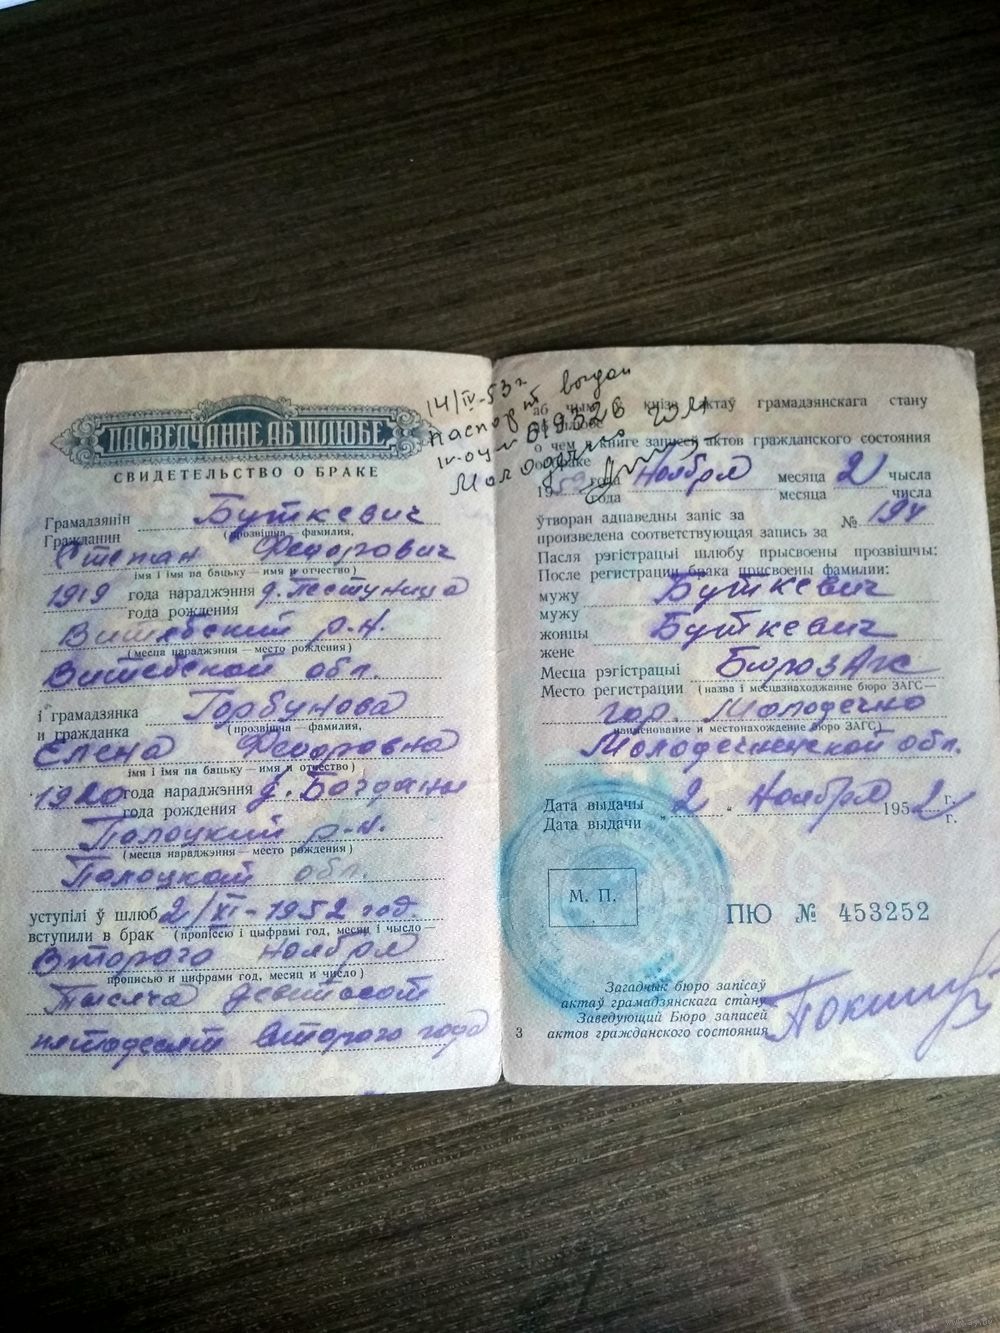 ПАСВЕДЧАННЕ АБ ШЛЮБЕ
СВИДЕТЕЛЬСТВО О БРАКЕ
Грамадзянін
Гражданин
Буткевич
(прозвішча — фамилия,
Степан Федорович
імя і імя па бацьку — имя и отчество)
1919 года нараджэння
года рождения
Витебский р-н.
(месца нараджэння — место рождения)
Витебской обл.
і грамадзянка
и гражданка
Горбунова
(прозвішча — фамилия,
Елена Федоровна
імя і імя па бацьку — имя и отчество)
1920 года нараджэння д.
года рождения
Полоцкий р-н.
(месца нараджэння — место рождения)
Полоцкой обл.
уступілі ў шлюб 2/XI-1952 год.
вступили в брак (прописсю і цыфрамі год, месяц і чысло —
Второго ноября
прописью и цифрами год, месяц и число)
Тысяча девятьсот
пятьдесят второго года
14/IV-53 г
паспорт выдан
аб чым у кнізе актаў грамадзянскага стану
о чем в книге записей актов гражданского состояния
о браке
1952 года Ноября месяца 2 чысла
года месяца числа
ўтворан адпаведны запіс за
произведена соответствующая запись за № 194
Пасля рэгістрацыі шлюбу прысвоены прозвішчы:
После регистрации брака присвоены фамилии:
мужу
мужу
Буткевич
жонцы
жене
Буткевич
Месца рэгістрацыі
Место регистрации
Бюро ЗАГС
(назва і месцазнаходжанне бюро ЗАГС —
гор. Молодечно
наименование и местонахождение бюро ЗАГС)
Молодечненской обл.
Дата выдачы
Дата выдачи
" 2 " Ноября 1952 г.
г.
М. П.
ПЮ № 453252
Загадчык бюро запісаў
актаў грамадзянскага стану
Заведующий Бюро записей
актов гражданского состояния
3